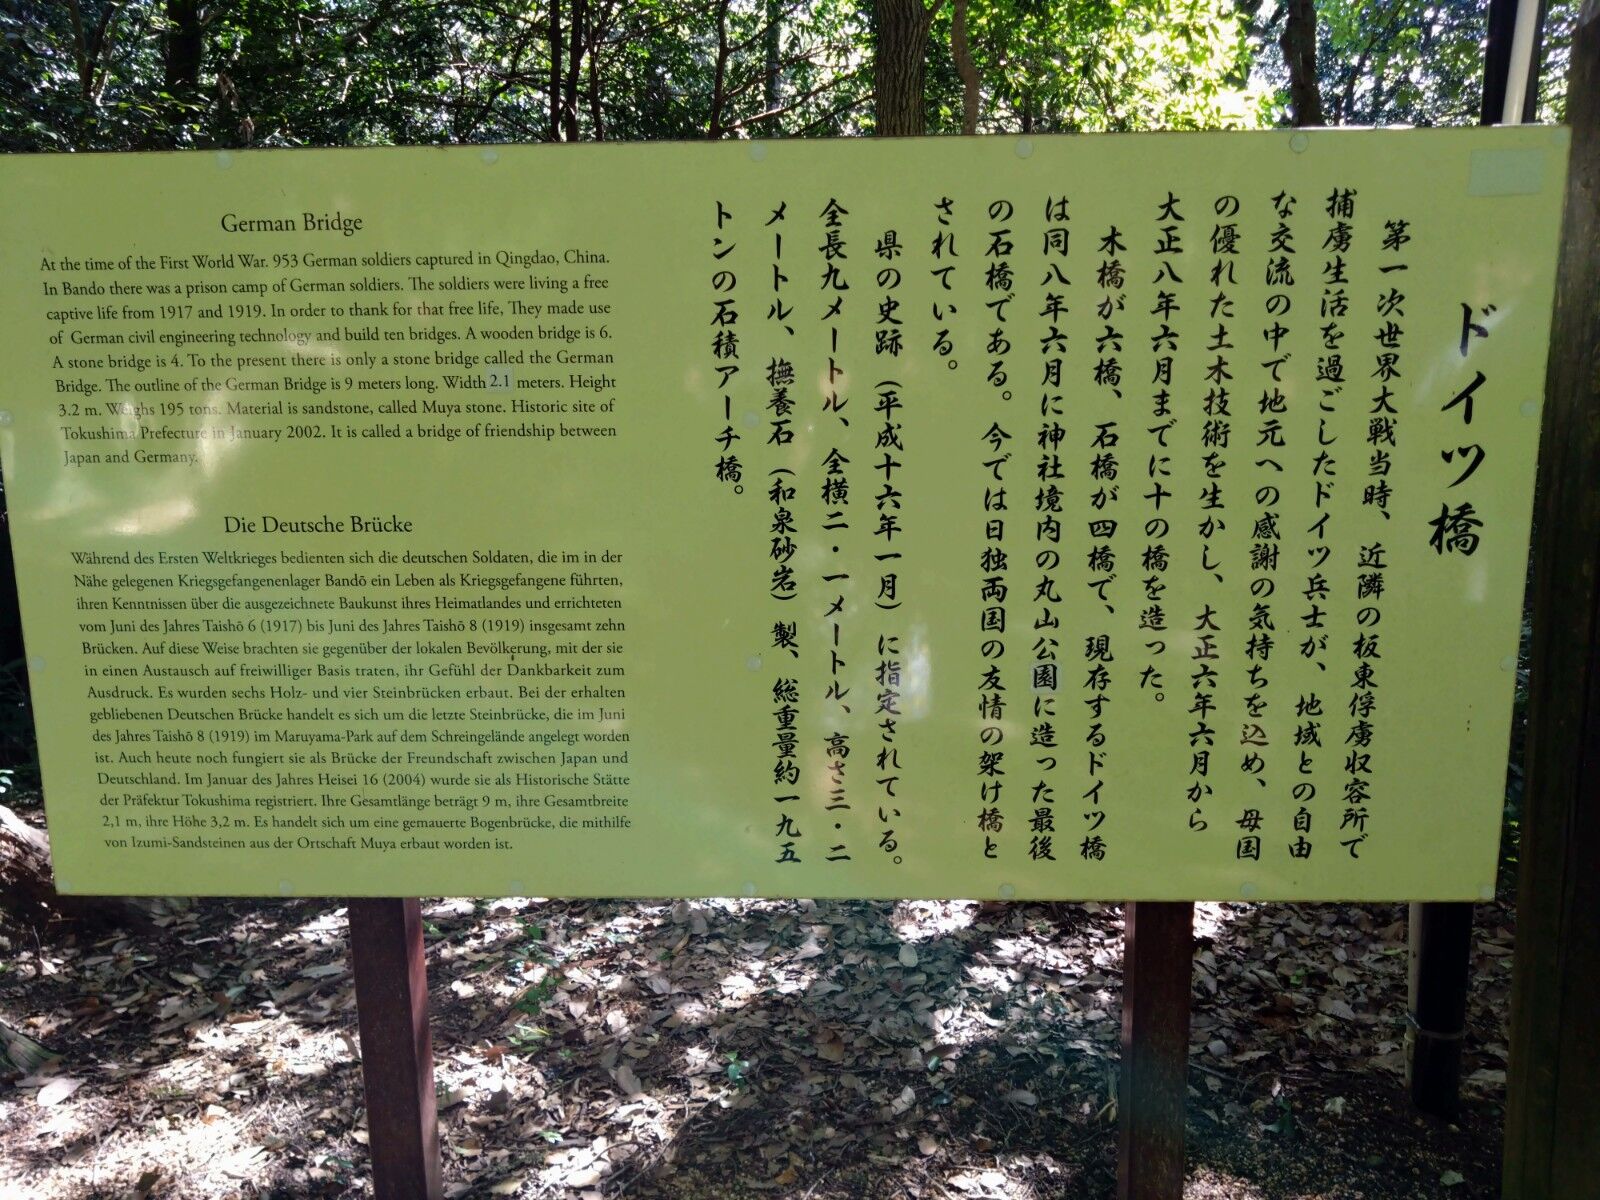 ドイツ橋
第一次世界大戦当時、近隣の板東俘虜収容所で
捕虜生活を過ごしたドイツ兵士が、地域との自由
な交流の中で地元への感謝の気持ちを込め、母国
の優れた土木技術を生かし、大正六年六月から
大正八年六月までに十の橋を造った。
木橋が六橋、石橋が四橋で、現存するドイツ橋
は同八年六月に神社境内の丸山公園に造った最後
の石橋である。今では日独両国の友情の架け橋と
されている。
県の史跡（平成十六年一月）に指定されている。
全長九メートル、全横二・一メートル、高さ三・二
メートル、撫養石（和泉砂岩）製、総重量約一九五
トンの石積アーチ橋。
German Bridge
At the time of the First World War. 953 German soldiers captured in Qingdao, China.
In Bando there was a prison camp of German soldiers. The soldiers were living a free
captive life from 1917 and 1919. In order to thank for that free life, They made use
of German civil engineering technology and build ten bridges. A wooden bridge is 6.
A stone bridge is 4. To the present there is only a stone bridge called the German
Bridge. The outline of the German Bridge is 9 meters long. Width 2.1 meters. Height
3.2 m. Weighs 195 tons. Material is sandstone, called Muya stone. Historic site of
Tokushima Prefecture in January 2002. It is called a bridge of friendship between
Japan and Germany.
Die Deutsche Brücke
Während des Ersten Weltkrieges bedienten sich die deutschen Soldaten, die im in der
Nähe gelegenen Kriegsgefangenenlager Bandō ein Leben als Kriegsgefangene führten,
ihren Kenntnissen über die ausgezeichnete Baukunst ihres Heimatlandes und errichteten
vom Juni des Jahres Taishō 6 (1917) bis Juni des Jahres Taishō 8 (1919) insgesamt zehn
Brücken. Auf diese Weise brachten sie gegenüber der lokalen Bevölkerung, mit der sie
in einen Austausch auf freiwilliger Basis traten, ihr Gefühl der Dankbarkeit zum
Ausdruck. Es wurden sechs Holz- und vier Steinbrücken erbaut. Bei der erhalten
gebliebenen Deutschen Brücke handelt es sich um die letzte Steinbrücke, die im Juni
des Jahres Taishō 8 (1919) im Maruyama-Park auf dem Schreingelände angelegt worden
ist. Auch heute noch fungiert sie als Brücke der Freundschaft zwischen Japan und
Deutschland. Im Januar des Jahres Heisei 16 (2004) wurde sie als Historische Stätte
der Präfektur Tokushima registriert. Ihre Gesamtlänge beträgt 9 m, ihre Gesamtbreite
2,1 m, ihre Höhe 3,2 m. Es handelt sich um eine gemauerte Bogenbrücke, die mithilfe
von Izumi-Sandsteinen aus der Ortschaft Muya erbaut worden ist.